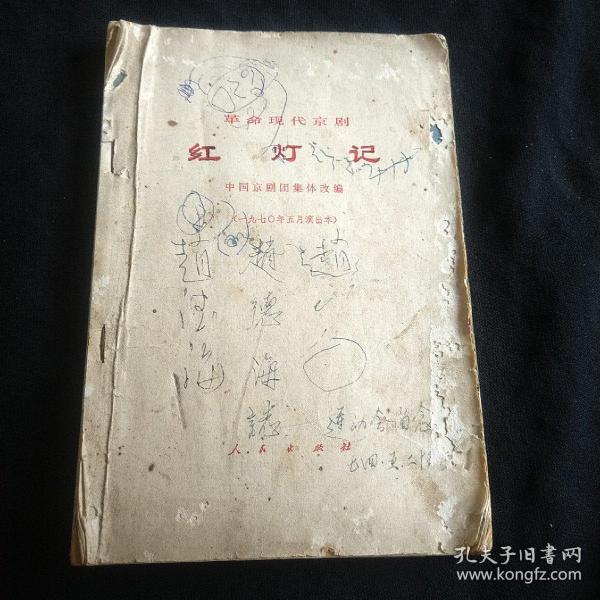 革命现代京剧
红灯记
中国京剧团集体改编
（一九七〇年五月演出本）
趙德海
趙德海誌
趙
运动会留念
人民出版社
孔夫子旧书网
www.kongfz.com